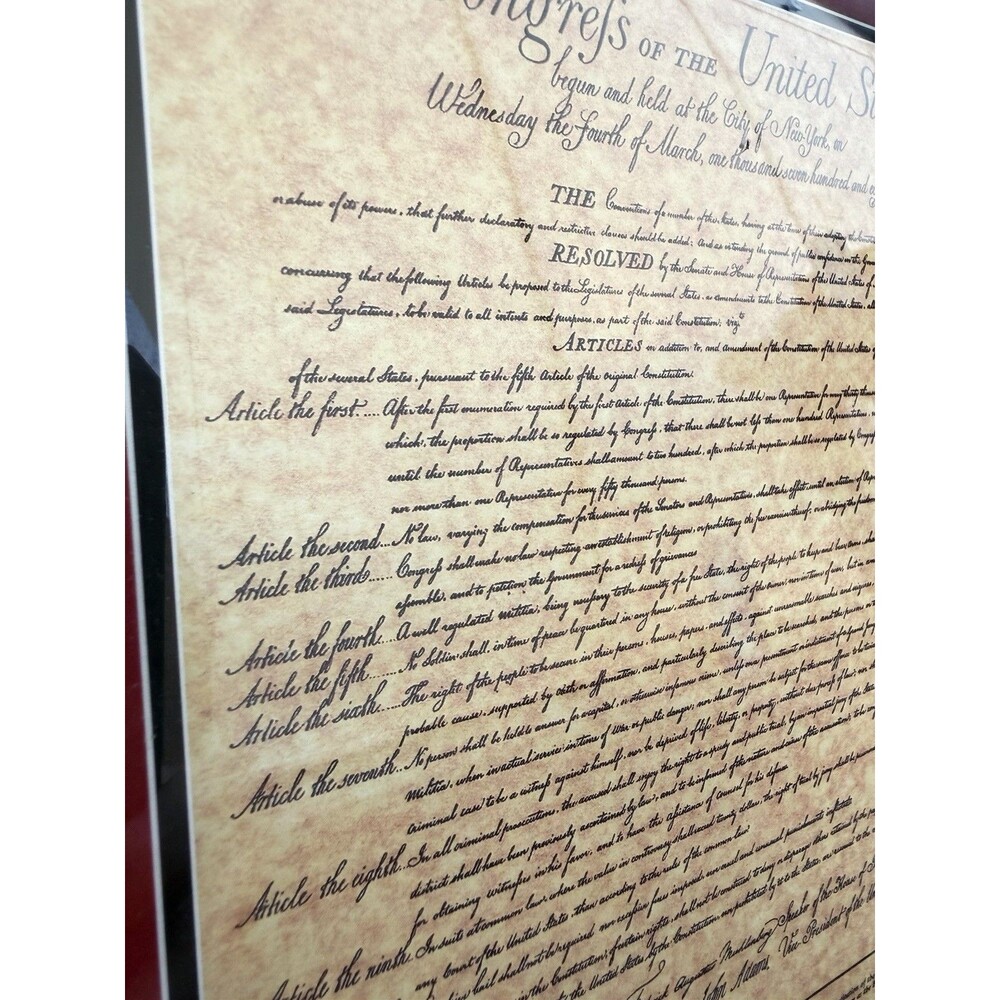 Congreſs OF THE United
begun and held at the City of New-York, on
Wednesday the Fourth of March, one thousand seven hundred and
THE Conventions of a number of the States, having at the time of their adopting the
or abuse of its powers, that further declaratory and restrictive clauses should be added: And as extending the ground of public confidence in the
RESOLVED by the Senate and House of Representatives of the United States of
concurring that the following Articles be proposed to the Legislatures of the several States, as amendments to the Constitution of the United States,
said Legislatures, to be valid to all intents and purposes, as part of the said Constitution; vizt
ARTICLES in addition to, and amendment of the Constitution of the United States of
of the several States, pursuant to the fifth Article of the original Constitution.
Article the first.... After the first enumeration required by the first Article of the Constitution, there shall be one Representative for every thirty
which, the proportion shall be so regulated by Congreſs, that there shall be not leſs than one hundred Representatives,
until the number of Representatives shall amount to two hundred, after which the proportion shall be so regulated by
nor more than one Representative for every fifty thousand persons.
Article the second... No law, varying the compensation for the services of the Senators and Representatives, shall take effect, until an election of
Article the third...... Congreſs shall make no law respecting an establishment of religion, or prohibiting the free exercise thereof; or abridging the freedom
aſsemble, and to petition the Government for a redreſs of grievances
Article the fourth... A well regulated militia, being neceſsary to the security of a free State, the right of the people to keep and bear arms
Article the fifth....... No Soldier shall, in time of peace be quartered in any house, without the consent of the owner, nor in time of war, but in
Article the sixth..... The right of the people to be secure in their persons, houses, papers, and effects, against unreasonable searches and seizures,
probable cause, supported by oath or affirmation, and particularly describing the place to be searched, and the persons or
Article the seventh... No person shall be held to answer for a capital, or otherwise infamous crime, unleſs on a presentment or indictment of a grand
Militia, when in actual service in time of War or public danger; nor shall any person be subject for the same offence
criminal case to be a witneſs against himself, nor be deprived of life, liberty, or property, without due proceſs of law;
Article the eighth. In all criminal prosecutions, the accused shall enjoy the right to a speedy and public trial, by an impartial jury of the State
district shall have been previously ascertained by law, and to be informed of the nature and cause of the accusation;
for obtaining witneſses in his favor, and to have the aſsistance of counsel for his defence
Article the ninth. In suits at common law, where the value in controversy shall exceed twenty dollars, the right of trial by jury shall be
any Court of the United States, than according to the rules of the common law
bail shall not be required nor exceſsive fines imposed, nor cruel and unusual punishments inflicted
in the Constitution, of certain rights, shall not be construed to deny or disparage others retained by the
to the United States by the Constitution, nor prohibited by it to the States, are reserved to the
Augustus Muhlenberg Speaker of the House of
John Adams, Vice-President of the